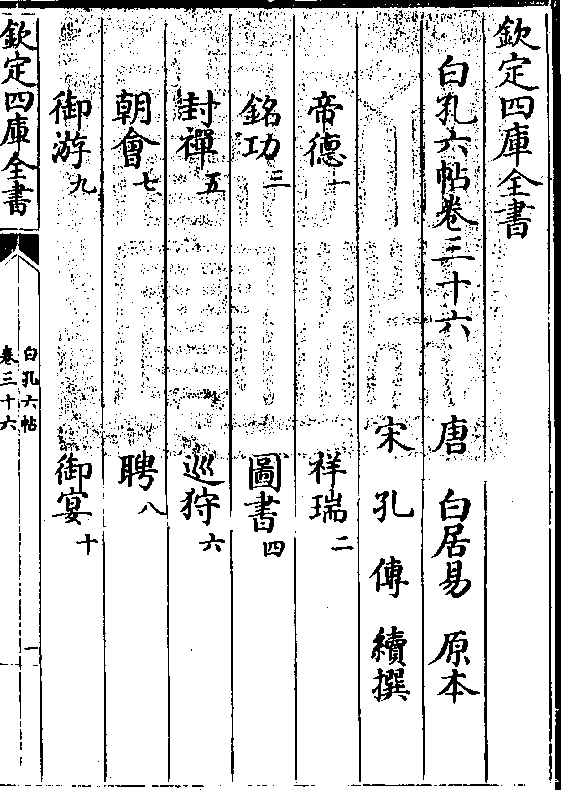 欽定四庫全書
白孔六帖卷三十六
唐 白居易 原本
宋 孔傳 續撰
帝德一 祥瑞二
銘功三 圖書四
封禪五 巡狩六
朝會七 聘八
御游九 御宴十
欽定四庫全書
白孔六帖
卷三十六
一